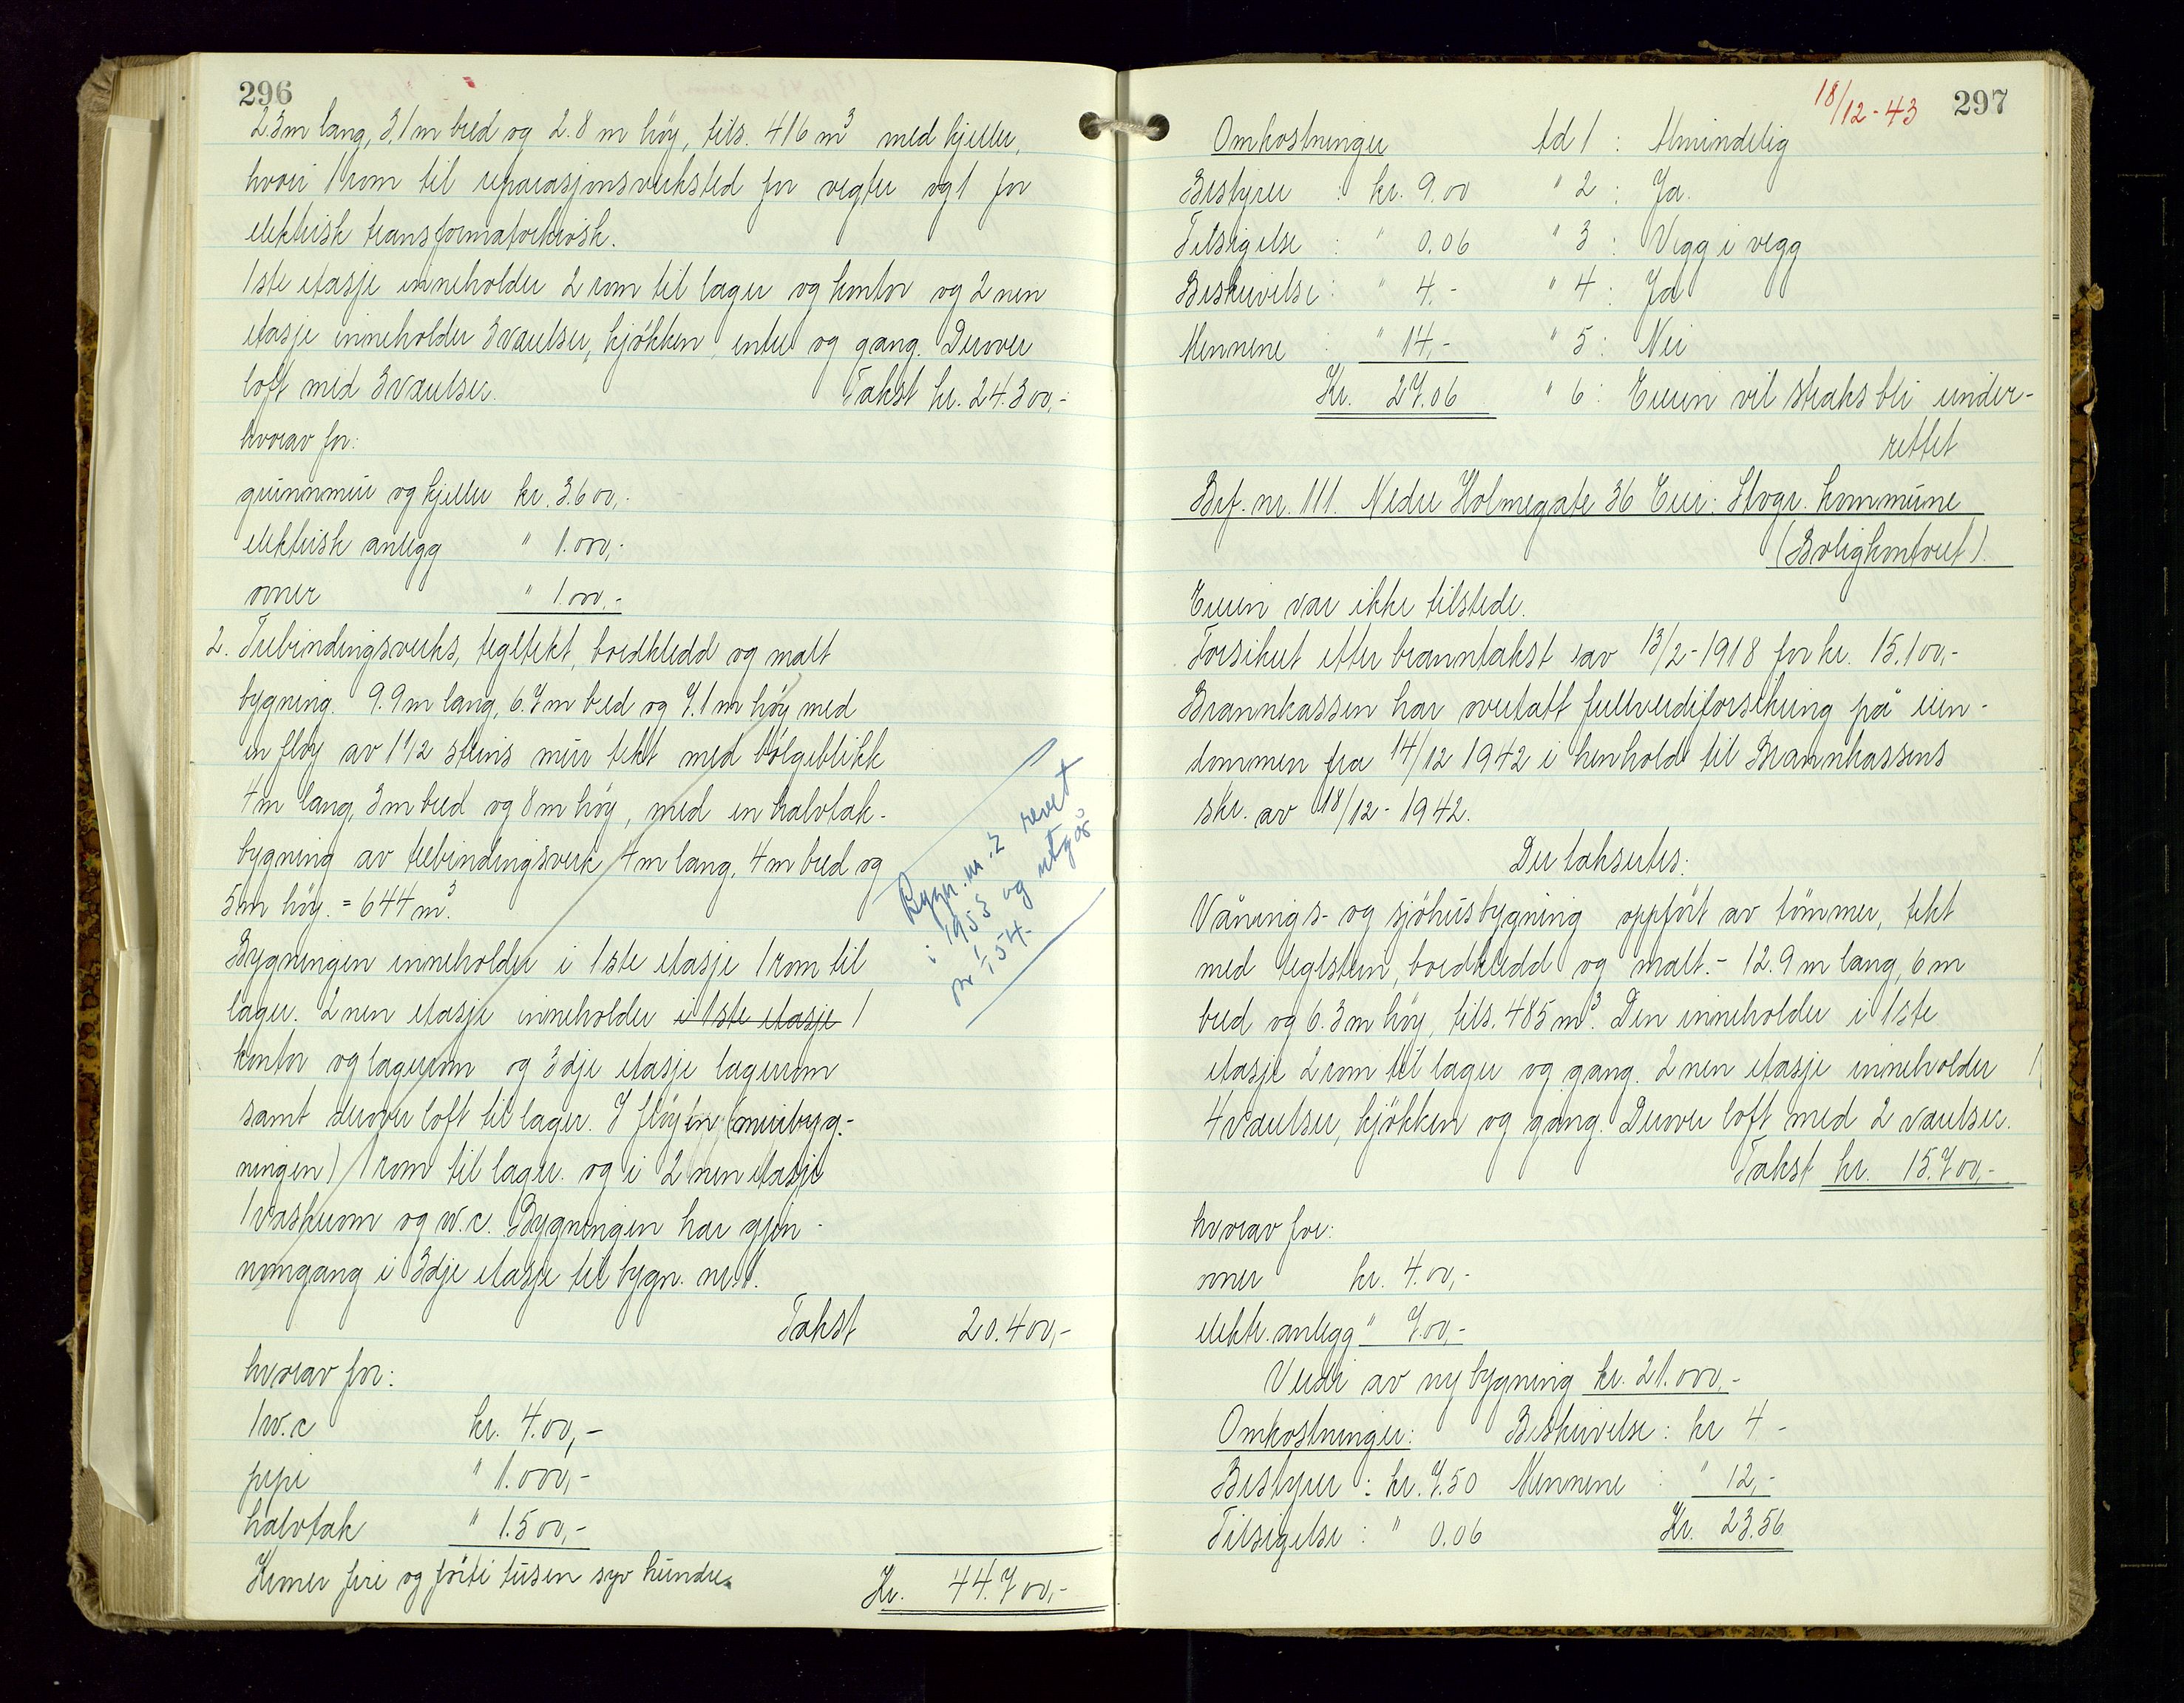 296
2.3m lang, 3.1m bred og 2.8 m høy, tils. 416 m³ med kjeller,
hvori 1 rom til reparasjonsverksted for vegter og 1 for
elektrisk transformatorkiosk.
1ste etasje inneholder 2 rom til lager og kontor og 2nen
etasje inneholder 3 værelser, kjøkken, entre og gang. Derover
loft med 3 værelser. Takst kr. 24.300,-
hvorav for:
grunnmur og kjeller kr. 3.600,-
elektrisk anlegg " 1.000,-
ovner " 1.000,-
2. Trebindingsverks, tegltekt, bordkledd og malt
bygning. 9.9m lang, 6.7m bred og 7.1m høy med
en fløy av 1 1/2 steins mur tekt med bølgeblikk
4m lang, 3m bred og 8m høy, med en halvtak-
bygning av trebindingsverk 4m lang, 4m bred og
5m høy. = 644 m³.
Bygningen inneholder i 1ste etasje 1 rom til
lager. 2nen etasje inneholder i 1ste etasje 1
kontor og lagerrom og 3dje etasje lagerrom
samt derover loft til lager. I fløyen (murbyg-
ningen) 1 rom til lager. og i 2nen etasje
1 vaskerom og w.c. Bygningen har gjen-
nomgang i 3dje etasje til bygn. nr. 1.
Takst 20.400,-
hvorav for:
1 w.c kr. 400,-
pipe " 1.000,-
halvtak " 1.500,-
Kroner fire og førti tusen syv hundre. Kr. 44.700,-
Bygn. nr. 2 revet
i 1953 og utgår
pr 1/1 54.
18/12-43 297
Omkostninger ad 1 : Almindelig
Bestyrer : kr. 9.00 " 2 : Ja.
Tilsigelse : " 0.06 " 3 : Vegg i vegg
Beskrivelse : " 4.- " 4 : Ja
Mennene : " 14,- " 5 : Nei
Kr. 27.06 " 6 : Eieren vil straks bli under-
rettet
Brf. nr. 111. Nedre Holmegate 36 Eier: Stvgr. kommune
(Boligkontoret).
Eieren var ikke tilstede.
Forsikret etter branntakst av 13/2-1918 for kr. 15.100,-
Brannkassen har overtatt fullverdiforsikring på eien-
dommen fra 14/12 1942 i henhold til Brannkassens
skr. av 18/12-1942.
Der takseres:
Vånings- og sjøhusbygning oppført av tømmer, tekt
med teglstein, bordkledd og malt.- 12.9 m lang, 6 m
bred og 6.3 m høy, tils. 485 m³. Den inneholder i 1ste
etasje 2 rom til lager og gang. 2nen etasje inneholder
4 værelser, kjøkken og gang. Derover loft med 2 værelser.
Takst kr. 15.700,-
hvorav for:
ovner kr. 400,-
elektr. anlegg " 700,-
Verdi av ny bygning kr. 21.000,-
Omkostninger: Beskrivelse : kr 4 -
Bestyrer : kr. 7.50 Mennene : " 12,-
Tilsigelse : " 0.06 Kr. 23.56